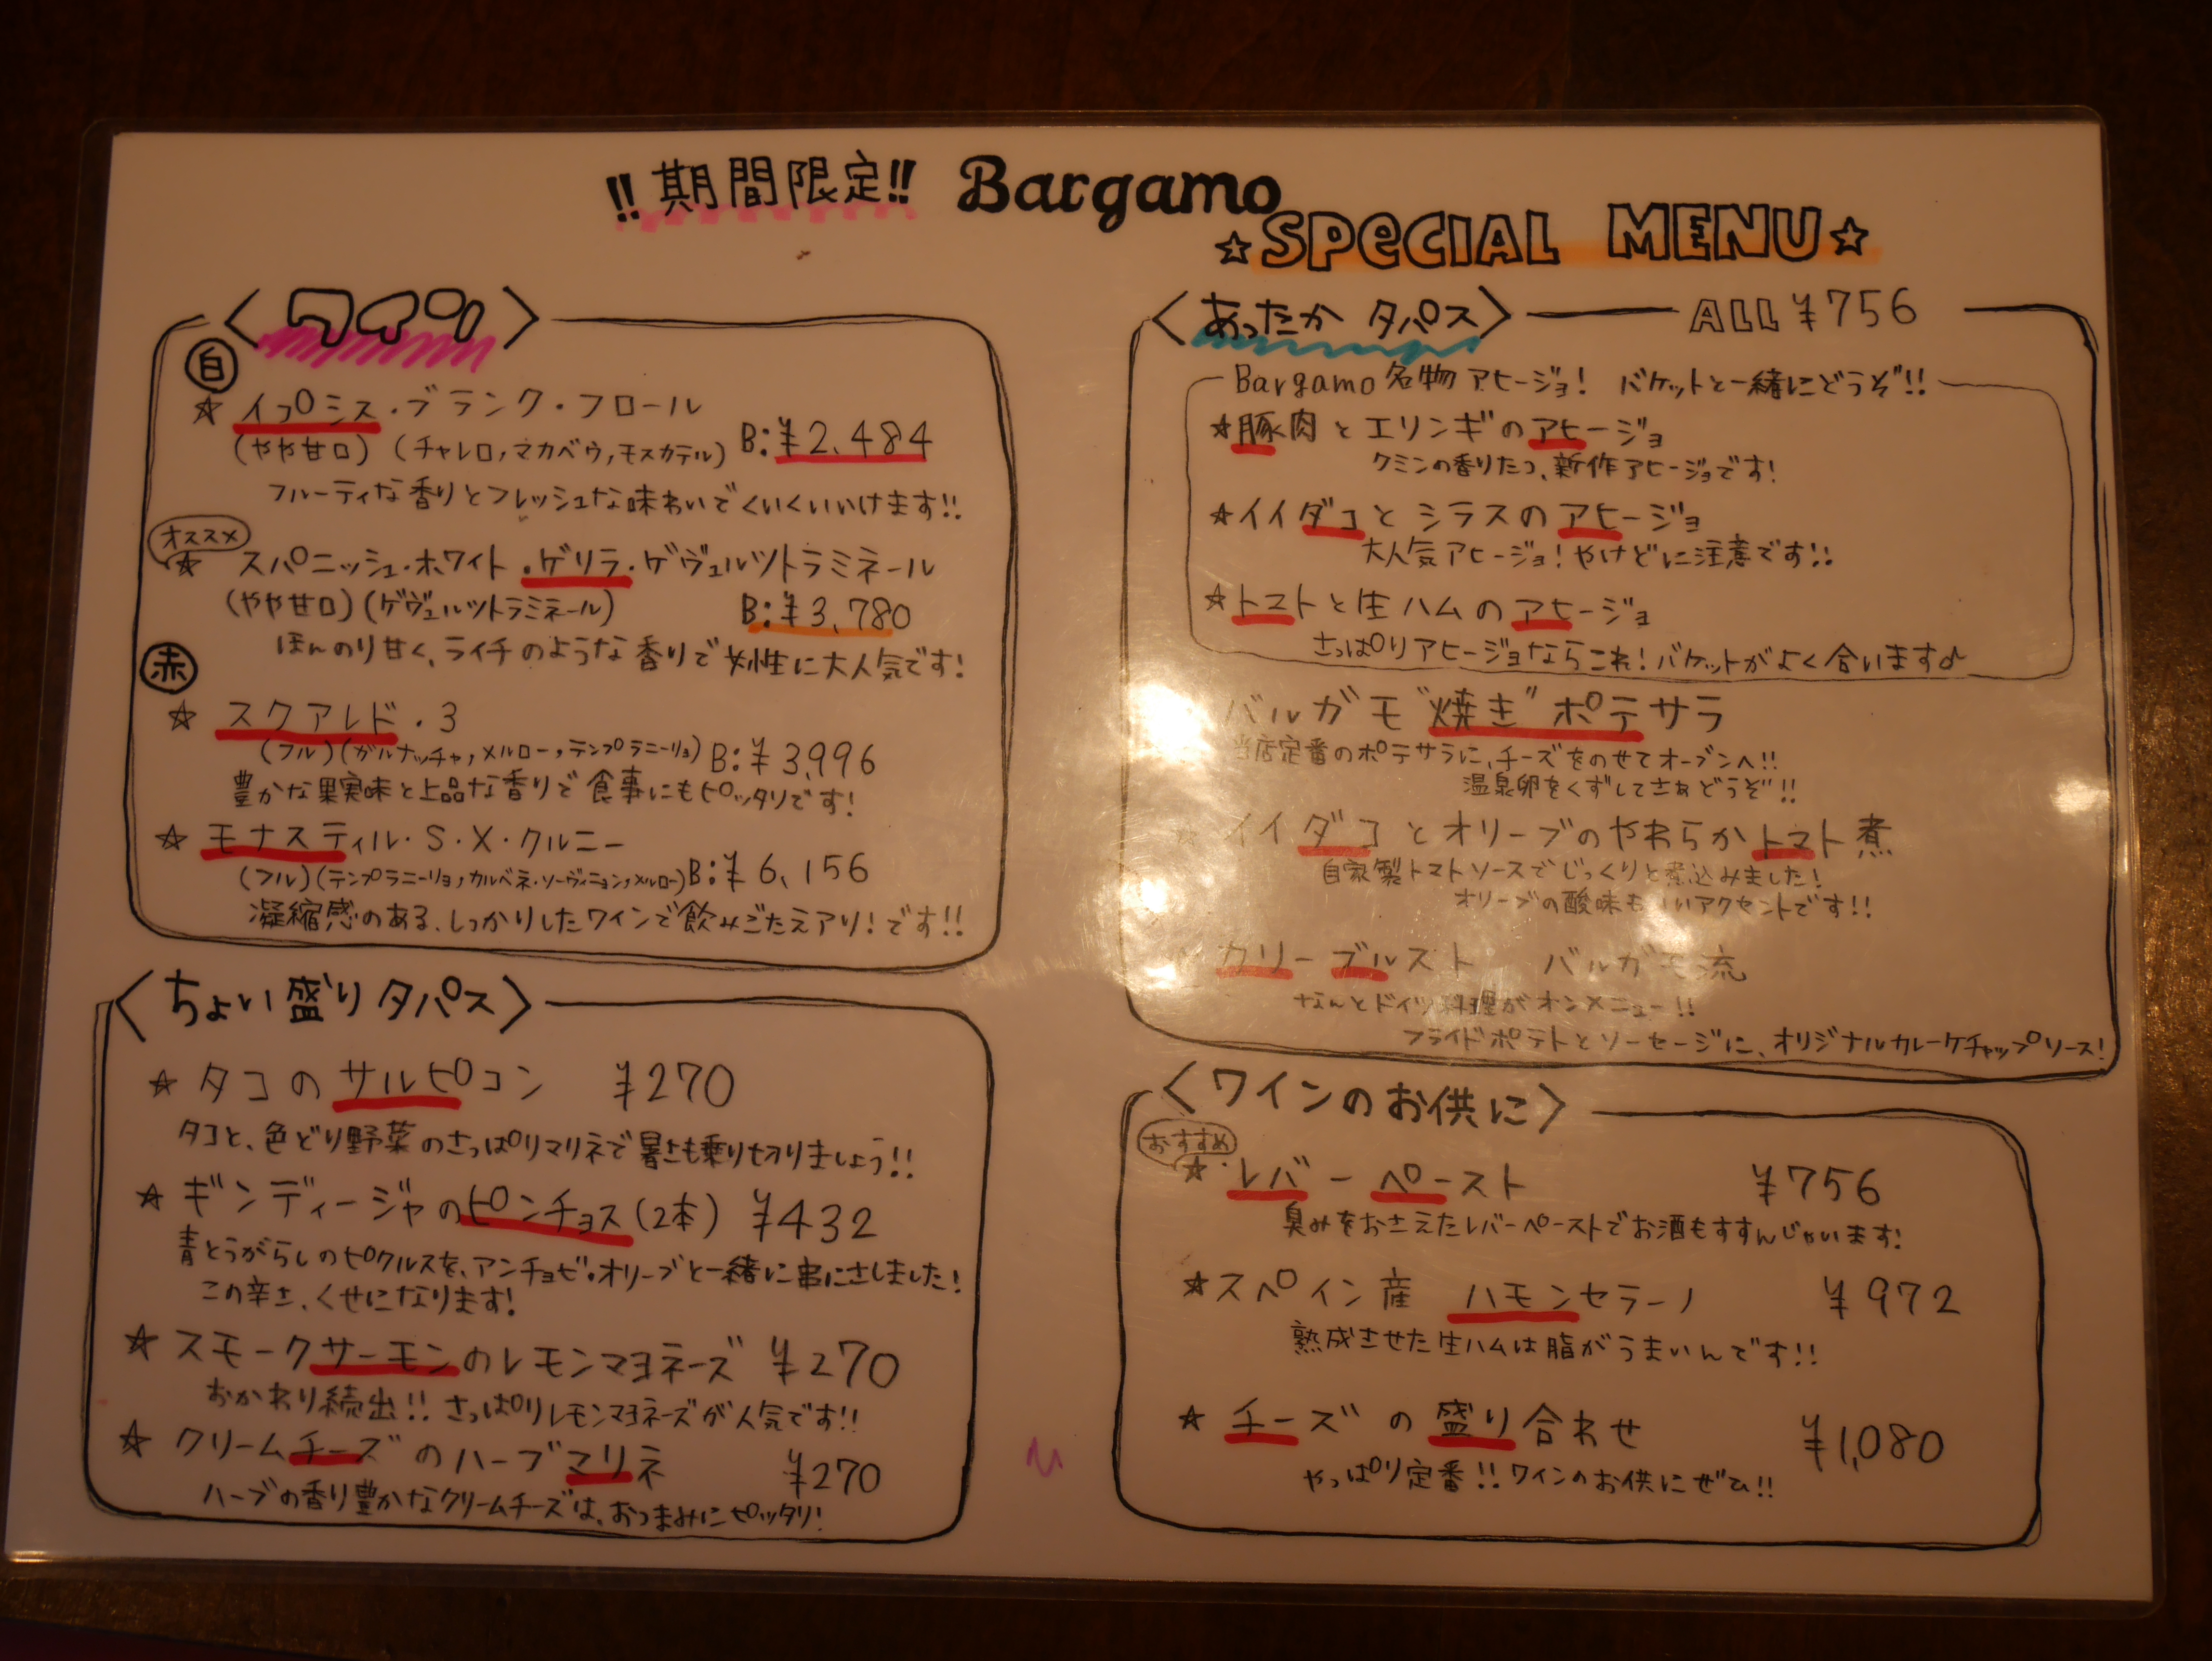 !!期間限定!! Bargamo
☆SPECIAL MENU☆
〈ワイン〉
白
☆イプシス・ブランク・フロール
(やや甘口) (チャレロ,マカベウ,モスカテル) B:¥2,484
フルーティな香りとフレッシュな味わいでくいくいいけます!!
オススメ
☆スパニッシュ・ホワイト・ゲリラ・ゲヴュルツトラミネール
(やや甘口)(ゲヴュルツトラミネール) B:¥3,780
ほんのり甘く、ライチのような香りで女性に大人気です!
赤
☆スクアレド・3
(フル)(ガルナッチャ,メルロー,テンプラニーリョ) B:¥3,996
豊かな果実味と上品な香りで食事にもピッタリです!
☆モナスティル・S・X・クルニー
(フル)(テンプラニーリョ,カルベネ・ソーヴィニョン,メルロー)B:¥6,156
凝縮感のある、しっかりしたワインで飲みごたえアリ!です!!
〈ちょい盛りタパス〉
☆タコのサルピコン ¥270
タコと、色どり野菜のさっぱりマリネで暑さも乗り切りましょう!!
☆ギンディージャのピンチョス(2本) ¥432
青とうがらしのピクルスを、アンチョビ・オリーブと一緒に串にさしました!
この辛さ、くせになります!
☆スモークサーモンのレモンマヨネーズ ¥270
おかわり続出!! さっぱりレモンマヨネーズが人気です!!
☆クリームチーズのハーブマリネ ¥270
ハーブの香り豊かなクリームチーズは、おつまみにピッタリ!
〈あったか タパス〉 ALL ¥756
Bargamo名物アヒージョ! バケットと一緒にどうぞ!!
☆豚肉とエリンギのアヒージョ
クミンの香りたつ、新作アヒージョです!
☆イイダコとシラスのアヒージョ
大人気アヒージョ!やけどに注意です!!
☆トマトと生ハムのアヒージョ
さっぱりアヒージョならこれ!バケットがよく合います♪
バルガモ"焼き"ポテサラ
当店定番のポテサラに、チーズをのせてオーブンへ!!
温泉卵をくずしてさあどうぞ!!
☆イイダコとオリーブのやわらかトマト煮
自家製トマトソースでじっくりと煮込みました!
オリーブの酸味もいいアクセントです!!
カリーブルスト バルガモ流
なんとドイツ料理がオンメニュー!!
フライドポテトとソーセージに、オリジナルカレーケチャップソース!
〈ワインのお供に〉
おすすめ
☆レバーペースト ¥756
臭みをおさえたレバーペーストでお酒もすすんじゃいます!
☆スペイン産 ハモンセラーノ ¥972
熟成させた生ハムは脂がうまいんです!!
☆チーズの盛り合わせ ¥1,080
やっぱり定番!!ワインのお供にぜひ!!